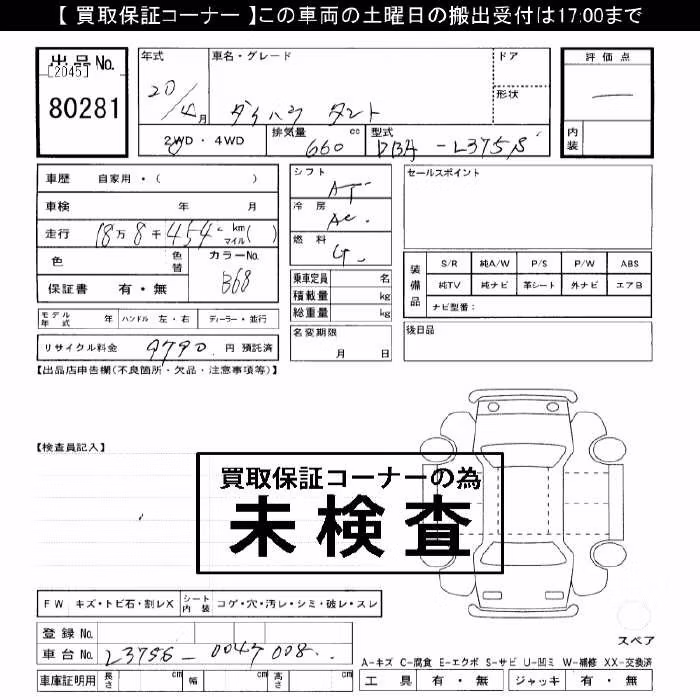 【 買取保証コーナー 】この車両の土曜日の搬出受付は17:00まで
出品No.
[2045]
80281
年式
20/4月
車名・グレード
ダイハツ タント
ドア
形状
評価点
—
内装
2WD・4WD
排気量
660 cc
型式
DBA-L375S
車歴 自家用・( )
車検 年 月
走行 18万8千454 km マイル ( )
色
色替
カラーNo.
B68
保証書 有・無
シフト
AT
冷房
AC
燃料
G
乗車定員 名
積載量 kg
総重量 kg
セールスポイント
装備品
S/R 純A/W P/S P/W ABS
純TV 純ナビ 革シート 外ナビ エアB
ナビ型番:
モデル年式 年 ハンドル 左・右 ディーラー・並行
リサイクル料金 9790 円 預託済
名変期限
月 日
後日品
【出品店申告欄(不良箇所・欠品・注意事項等)】
【検査員記入】
買取保証コーナーの為
未検査
FW キズ・トビ石・割レX シート内装 コゲ・穴・汚レ・シミ・破レ・スレ
登録No.
車台No. L375S-0047008
車庫証明用 長さ cm 幅 cm 高さ cm
スペア
A-キズ C-腐食 E-エクボ S-サビ U-凹ミ W-補修 XX-交換済
工具 有・無 ジャッキ 有・無